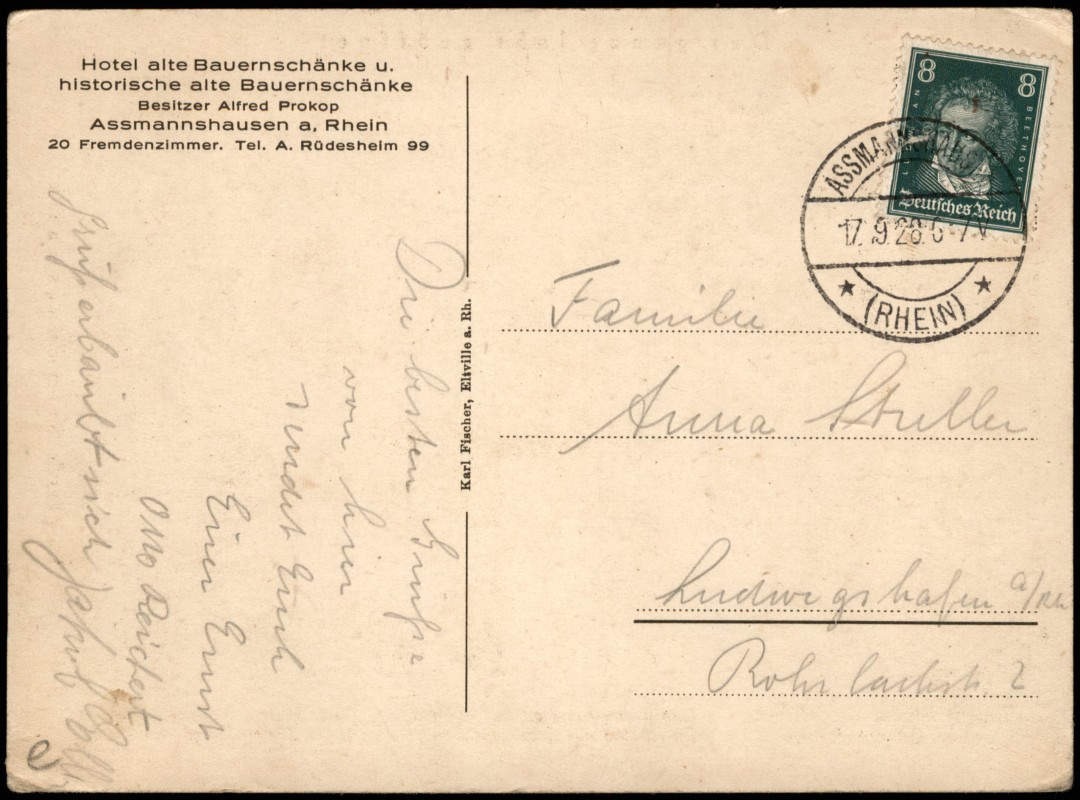 Hotel alte Bauernschänke u.
historische alte Bauernschänke
Besitzer Alfred Prokop
Assmannshausen a, Rhein
20 Fremdenzimmer. Tel. A. Rüdesheim 99
Die besten Grüße
von hier
sendet Euch
Euer Ernst
Otto Reichert
Gruß erlaubt sich
Karl Fischer, Eltville a. Rh.
8 8
BEETHOVEN
Deutsches Reich
ASSMANNSHAUSEN
17.9.28. 6-7V
(RHEIN)
Familie
Anna Struller
Ludwigshafen a/Rh
Rohrlachstr. 2